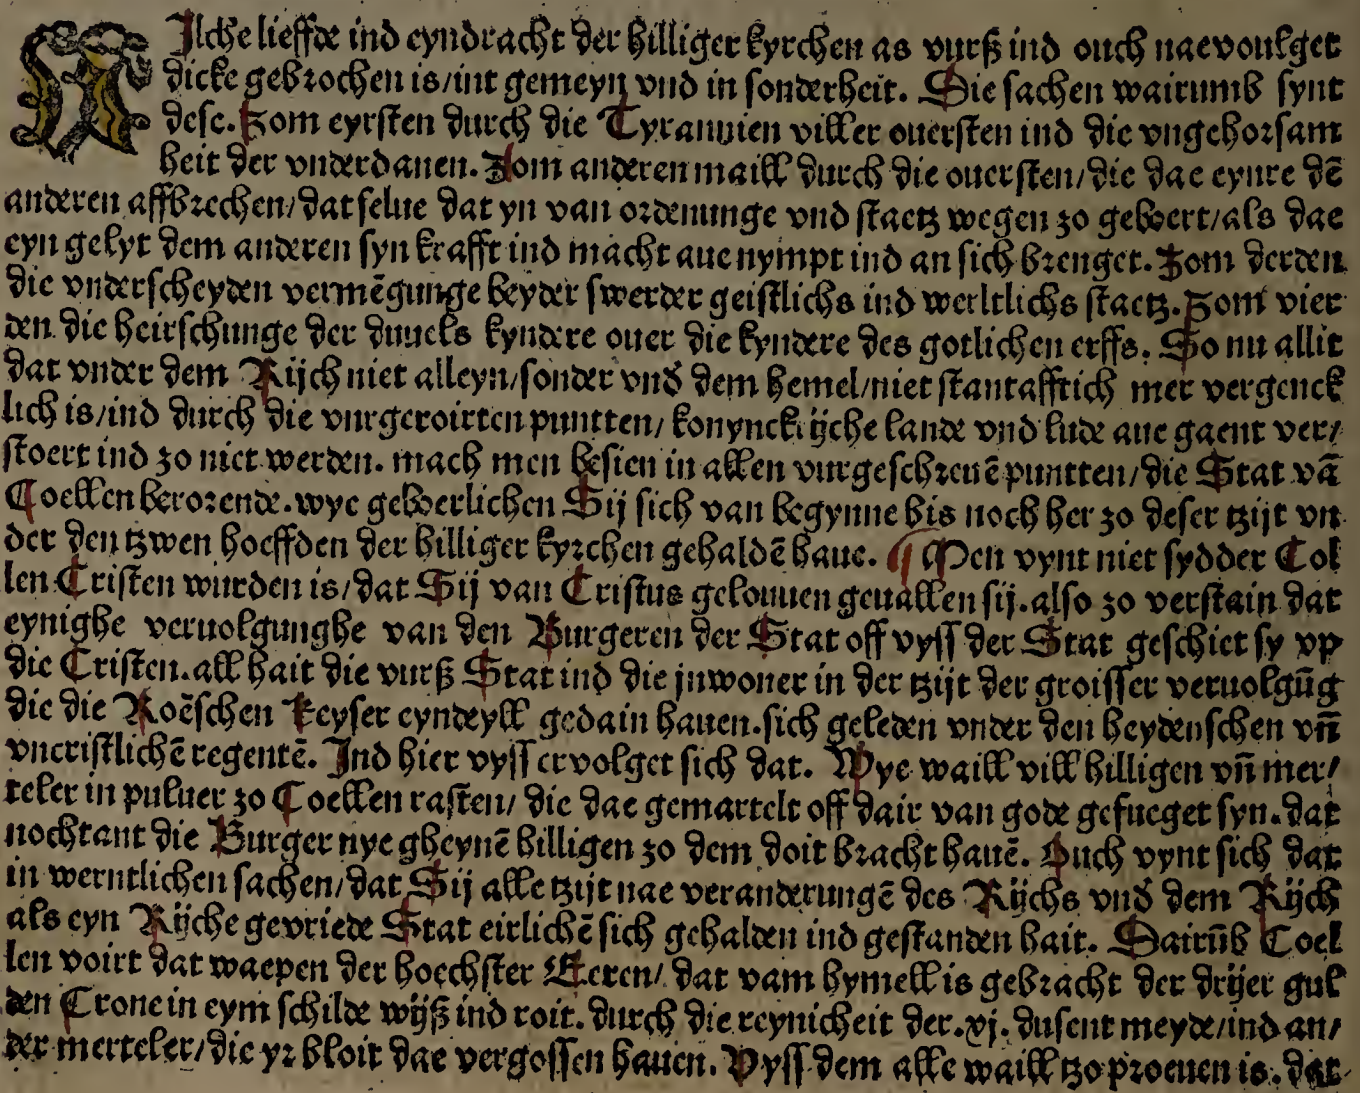 WIlche lieffde ind eyndracht der hilliger kyrchen as vurß ind ouch naevoulget
dicke gebrochen is/int gemeyn vnd in sonderheit. Die sachen wairumb synt
dese. Zom eyrsten durch die Tyrannien viller ouersten ind die vngehorsam
heit der vnderdanen. Zom anderen maill durch die ouersten/die dae eynre dē
anderen affbrechen/dat selue dat yn van ordenunge vnd staetz wegen zo geboert/als dae
eyn gelyt dem anderen syn krafft ind macht aue nympt ind an sich brenget. Zom derden
die vnderscheyden vermēgunge beyder swerder geistlichs ind werltlichs staetz. Zom vier
den die heirschunge der duuels kyndere ouer die kyndere des gotlichen erffs. So nu allit
dat vnder dem Rijch niet alleyn/sonder vnd dem hemel/niet stantafftich mer vergenck
lich is/ind durch die vurgeroirten puntten/konynckrijche lande vnd lude aue gaent ver/
stoert ind zo niet werden. mach men besien in allen vurgeschreuē puntten/die Stat vā
Coellen berorende. wye geboerlichen Sij sich van begynne bis noch her zo deser tzijt vn
der den tzwen hoeffden der hilliger kyrchen gehaldē haue. ¶ Men vynt niet sydder Col
len Cristen wurden is/dat Sij van Cristus gelouuen geuallen sij. also zo verstain dat
eynighe veruolgunghe van den Burgeren der Stat off vyss der Stat geschiet sy vp
die Cristen. all hait die vurß Stat ind die jnwoner in der tzijt der groisser veruolgūg
die die Roēschen keyser eyndeyll gedain hauen. sich geleden vnder den heydenschen vñ
vncristlichē regentē. Ind hier vyss ervolget sich dat. Wye waill vill hilligen vñ mer/
teler in puluer zo Coellen rasten/ die dae gemartelt off dair van gode gefueget syn. dat
nochtant die Burger nye gheynē hilligen zo dem doit bracht hauē. Ouch vynt sich dat
in werntlichen sachen/dat Sij alle tzijt nae veranderungē des Rijchs vnd dem Rijch
als eyn Rijche gevriede Stat eirlichē sich gehalden ind gestanden hait. Dairūb Coel
len voirt dat waepen der hoechster Eeren/ dat vam hymell is gebracht der drijer gul
den Crone in eym schilde wijß ind roit. durch die reynicheit der .xj. dusent meyde/ind an/
der merteler/die yr bloit dae vergossen hauen. Vyss dem alle waill tzo proeuen is. dat